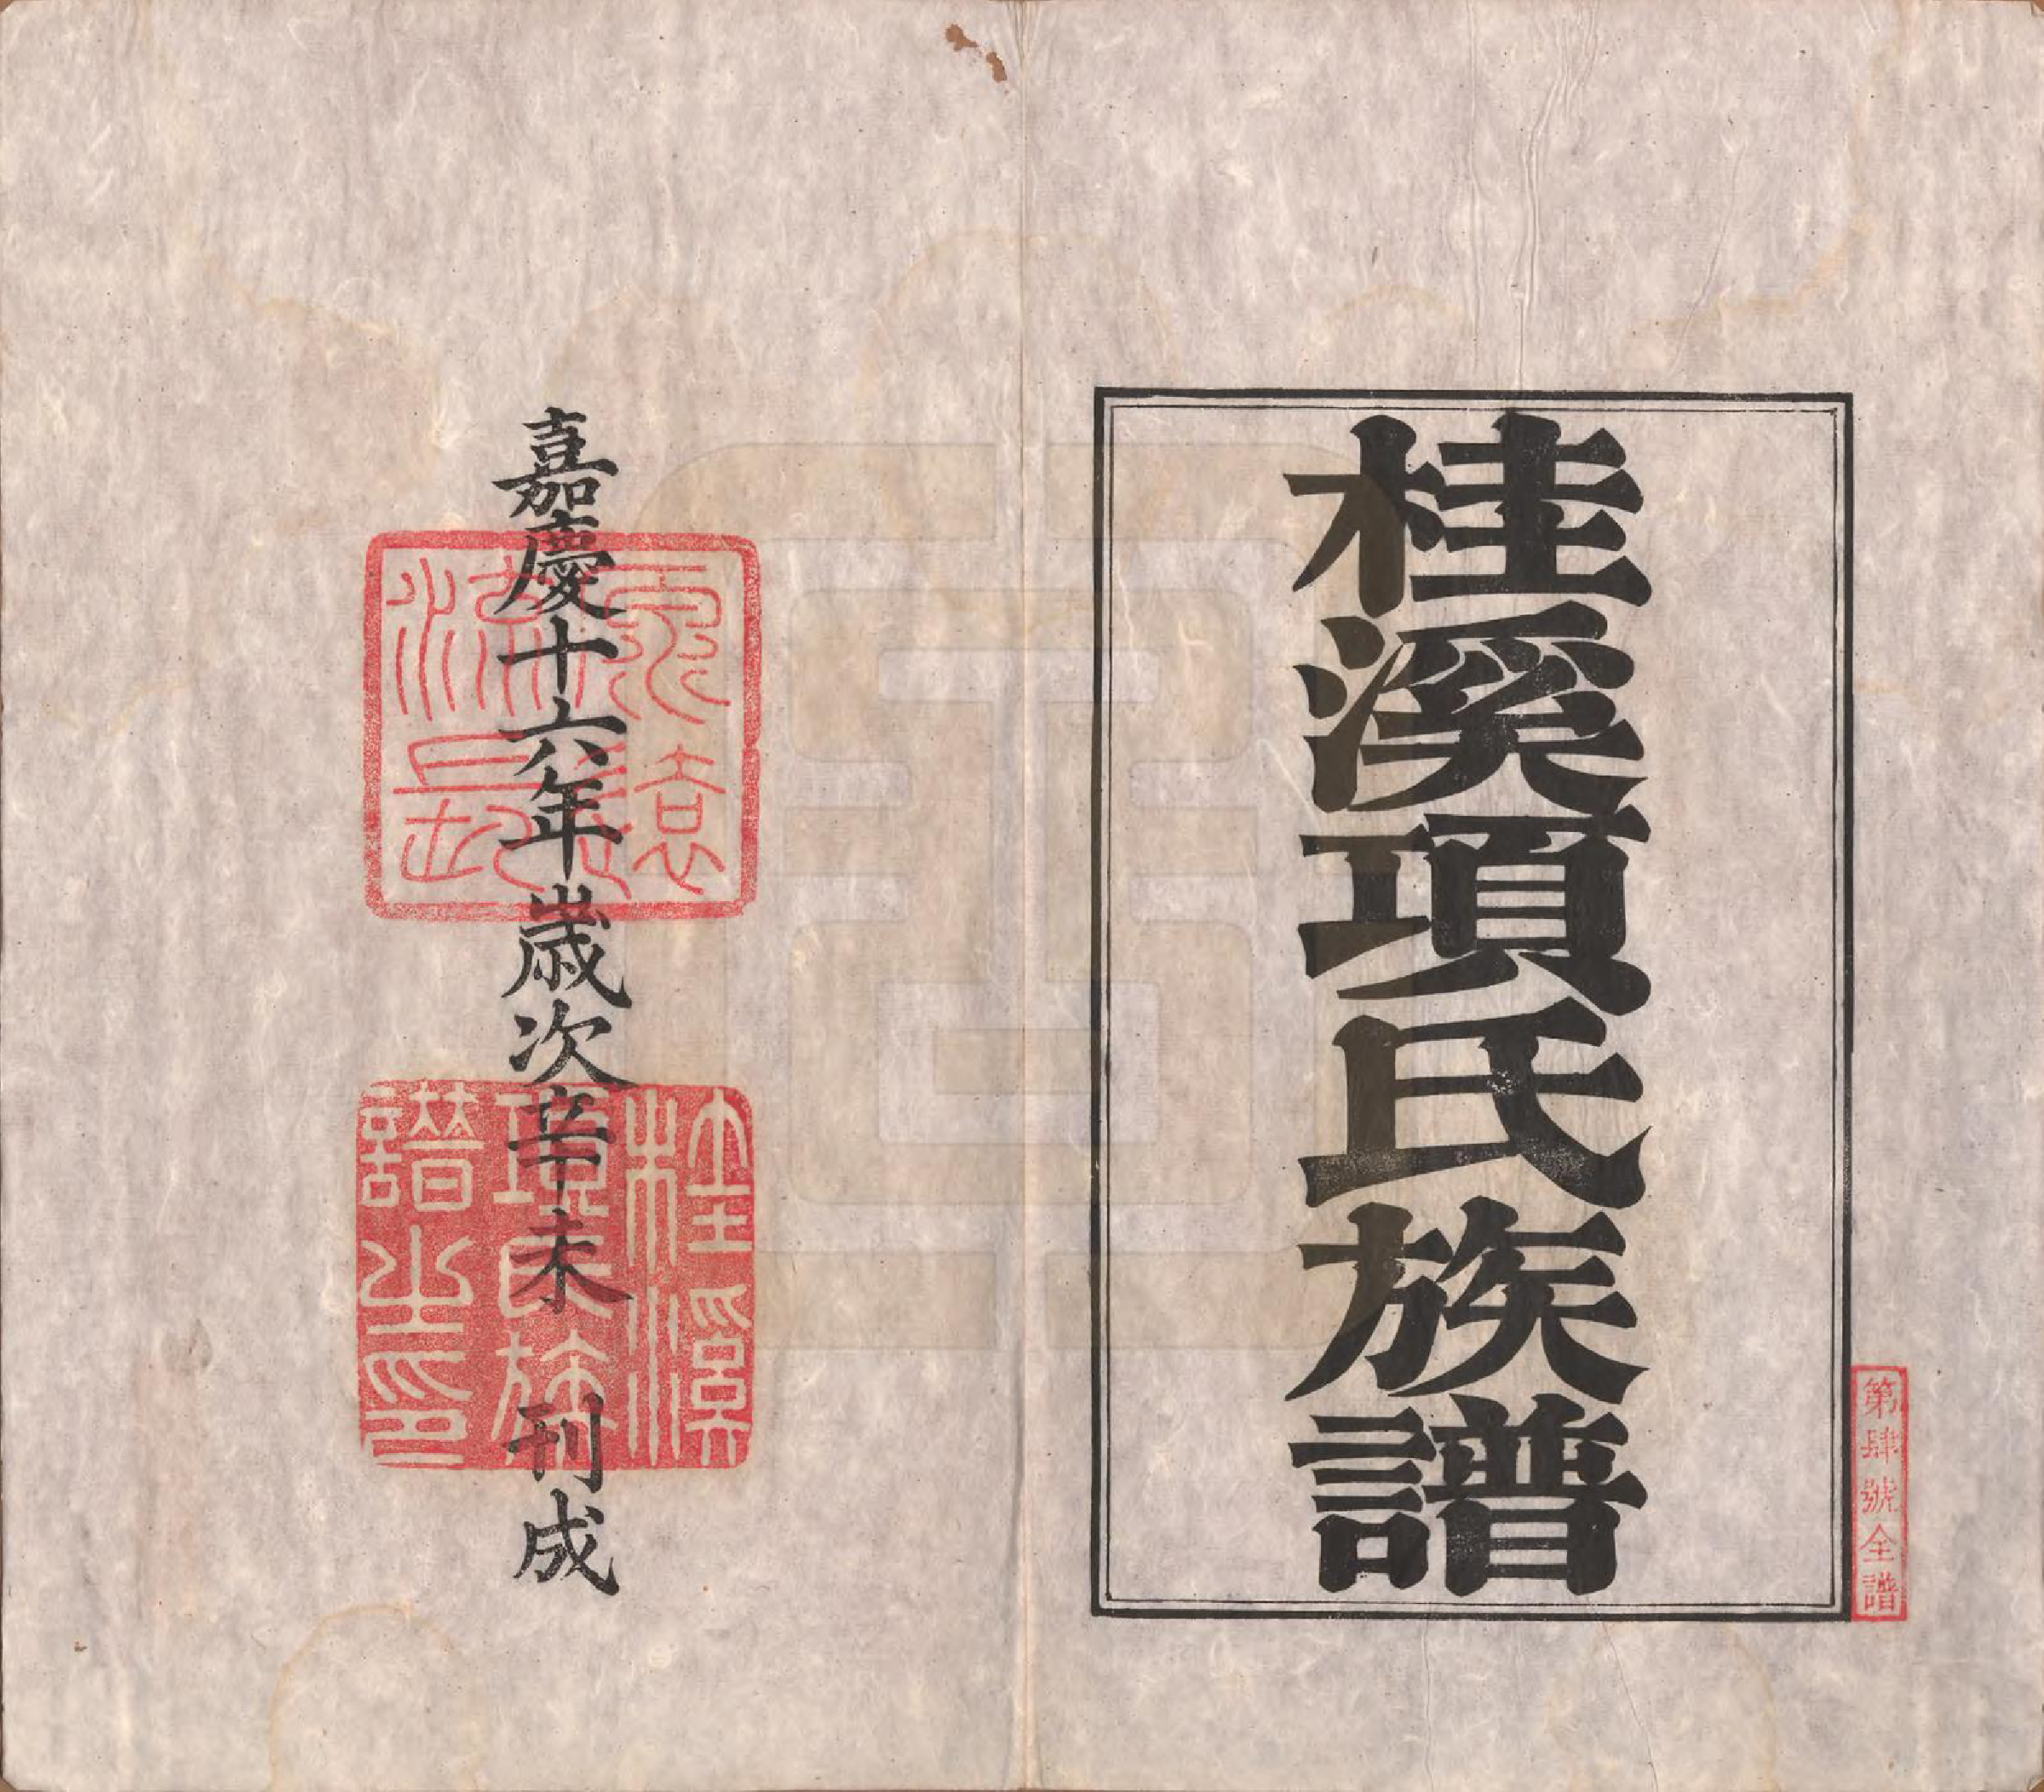 桂溪項氏族譜
第肆號全譜
嘉慶十六年歲次辛未 刊成
源遠流長
桂溪項氏族譜之印